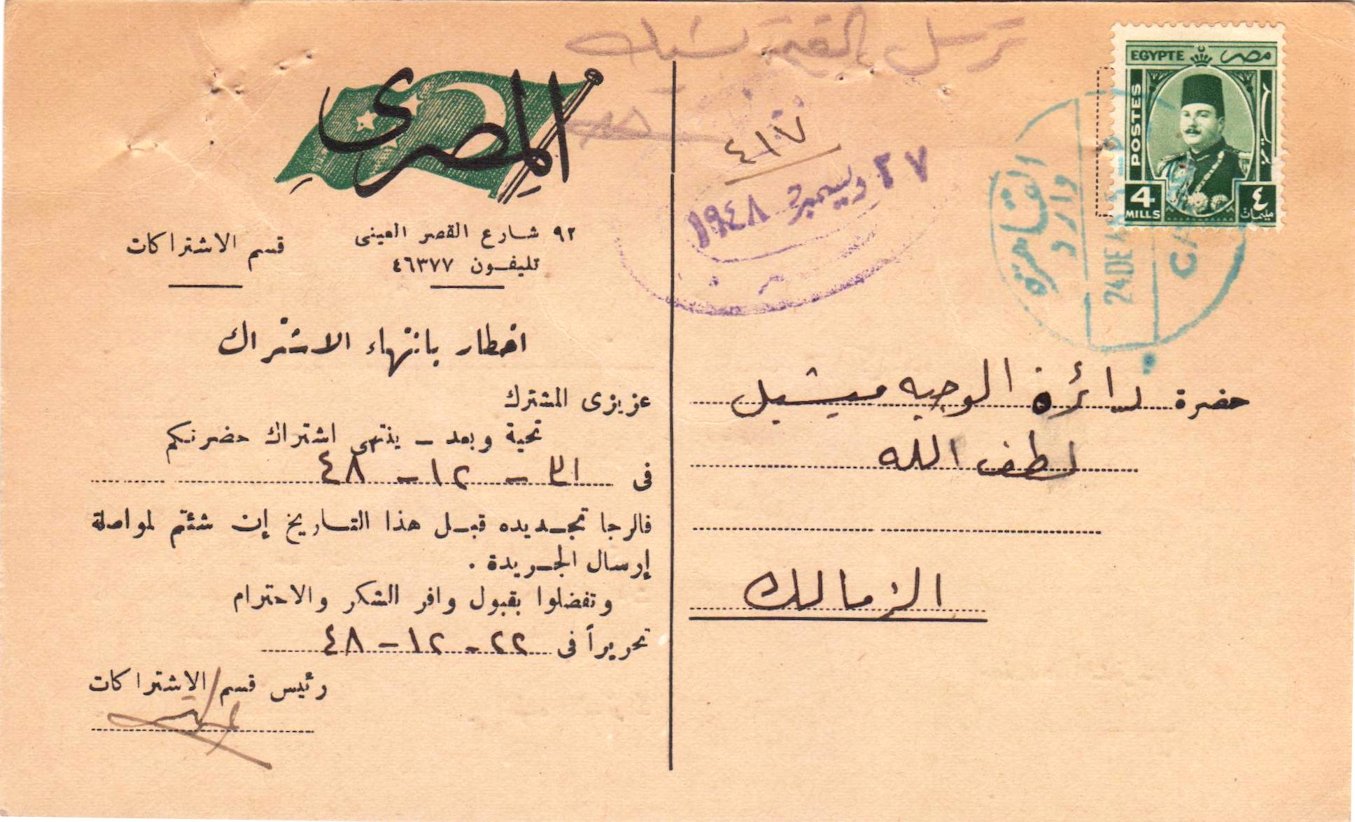 المصرى
٩٢ شارع القصر العينى
تليفون ٤٦٣٧٧
قسم الاشتراكات
اخطار بانتهاء الاشتراك
عزيزى المشترك
تحية وبعد – ينتهى اشتراك حضرتكم
فى ٣١ – ١٢ – ٤٨
فالرجا تجديده قبل هذا التاريخ إن شئتم لمواصلة
إرسال الجريدة .
وتفضلوا بقبول وافر الشكر والاحترام
تحريراً فى ٢٢ – ١٢ – ٤٨
رئيس قسم الاشتراكات
ترسل القيمة بشيك
٤١٧
٢٧ ديسمبر ١٩٤٨
EGYPTE مصر
POSTES
4 MILLS
٤ مليمات
القاهرة
وارد
24 DE
CA
حضرة دائرة الوجيه ميشيل
لطف الله
الزمالك